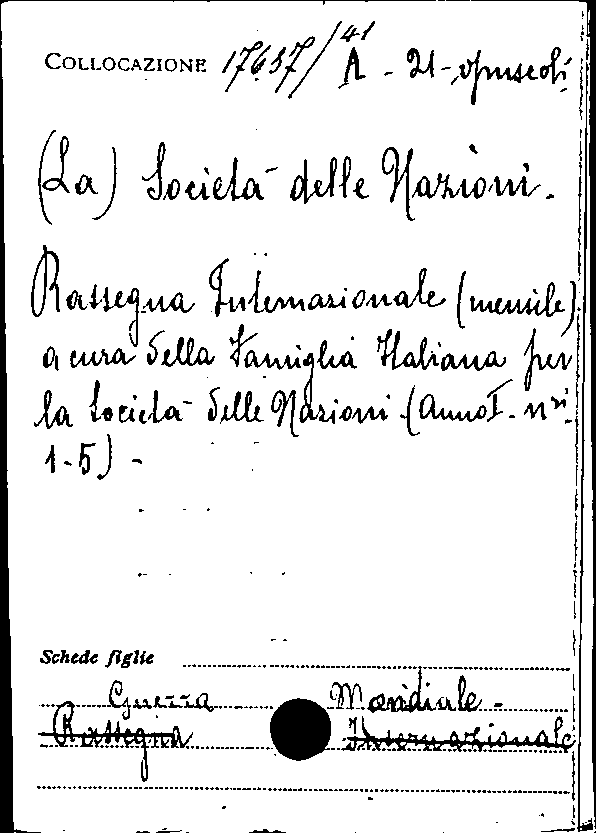 COLLOCAZIONE 17637/41 A - 21 - opuscoli
(La) Società delle Nazioni.
Rassegna Internazionale (mensile)
a cura della Famiglia Italiana per
la Società delle Nazioni. (Anno I. nri.
1-5) -
Schede figlie
Guerra Mondiale -
Rassegna Internazionale